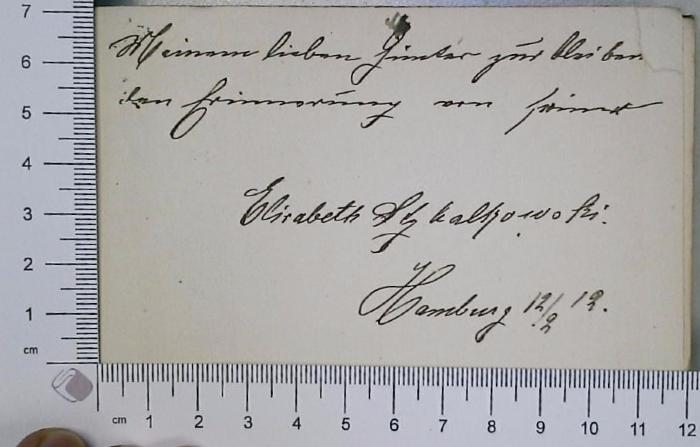 Meinem lieben Günter zur bleiben
den Erinnerung von seiner
Elisabeth
Hamburg 12/2 12.
7
6
5
4
3
2
1
cm
cm 1 2 3 4 5 6 7 8 9 10 11 12